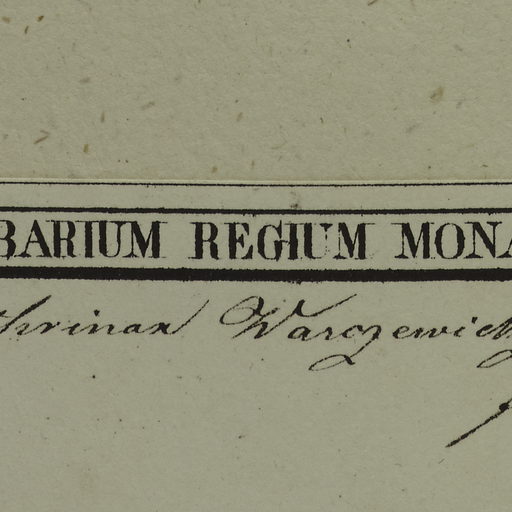 BARIUM REGIUM MONA
Warczewicz